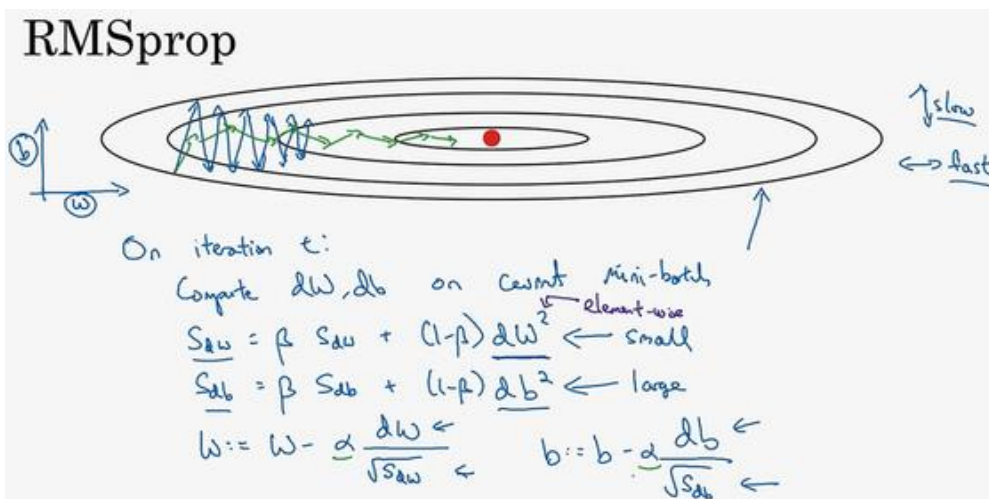 RMSprop
b
w
slow
fast
On iteration t:
Compute dW, db on current mini-batch
element-wise
S_dw = β S_dw + (1-β) dW² ← small
S_db = β S_db + (1-β) db² ← large
W := W - α dW/√S_dw ← ← b := b - α db/√S_db ← ←